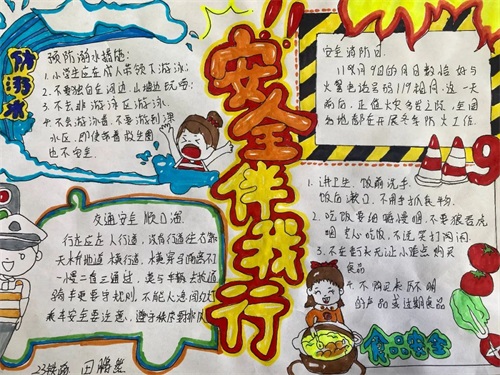 防溺水
预防溺水措施:
1.小学生应在成人带领下游泳;
2.不要独自在河边、山塘边玩耍;
3.不去非游泳区游泳.
4.不会游泳者,不要游到深
水区,即使带着救生圈
也不安全.
安全伴我行
安全消防日.
11月9日的月日数恰好与
火警电话号码119相同,这一天
前后,正值火灾多发之际,全国
各地都在开展冬季防火工作.
119
交通安全顺口溜
行走应走人行道,没有行道往右靠
天桥地道横行道,横穿马路
一慢二看三通过,莫与车辆去抢道
骑车更要守规则,不能心急闯红灯
乘车安全要注意,遵守秩序要排队
1.讲卫生,饭前洗手.
饭后漱口,不用手抓食物.
2.吃饭要细嚼慢咽,不要狼吞虎
咽,专心吃饭,不说笑打闹.
3.不在校门长无证小摊点购买
食品
4.不购买来历不明
的产品或过期食品
食品安全